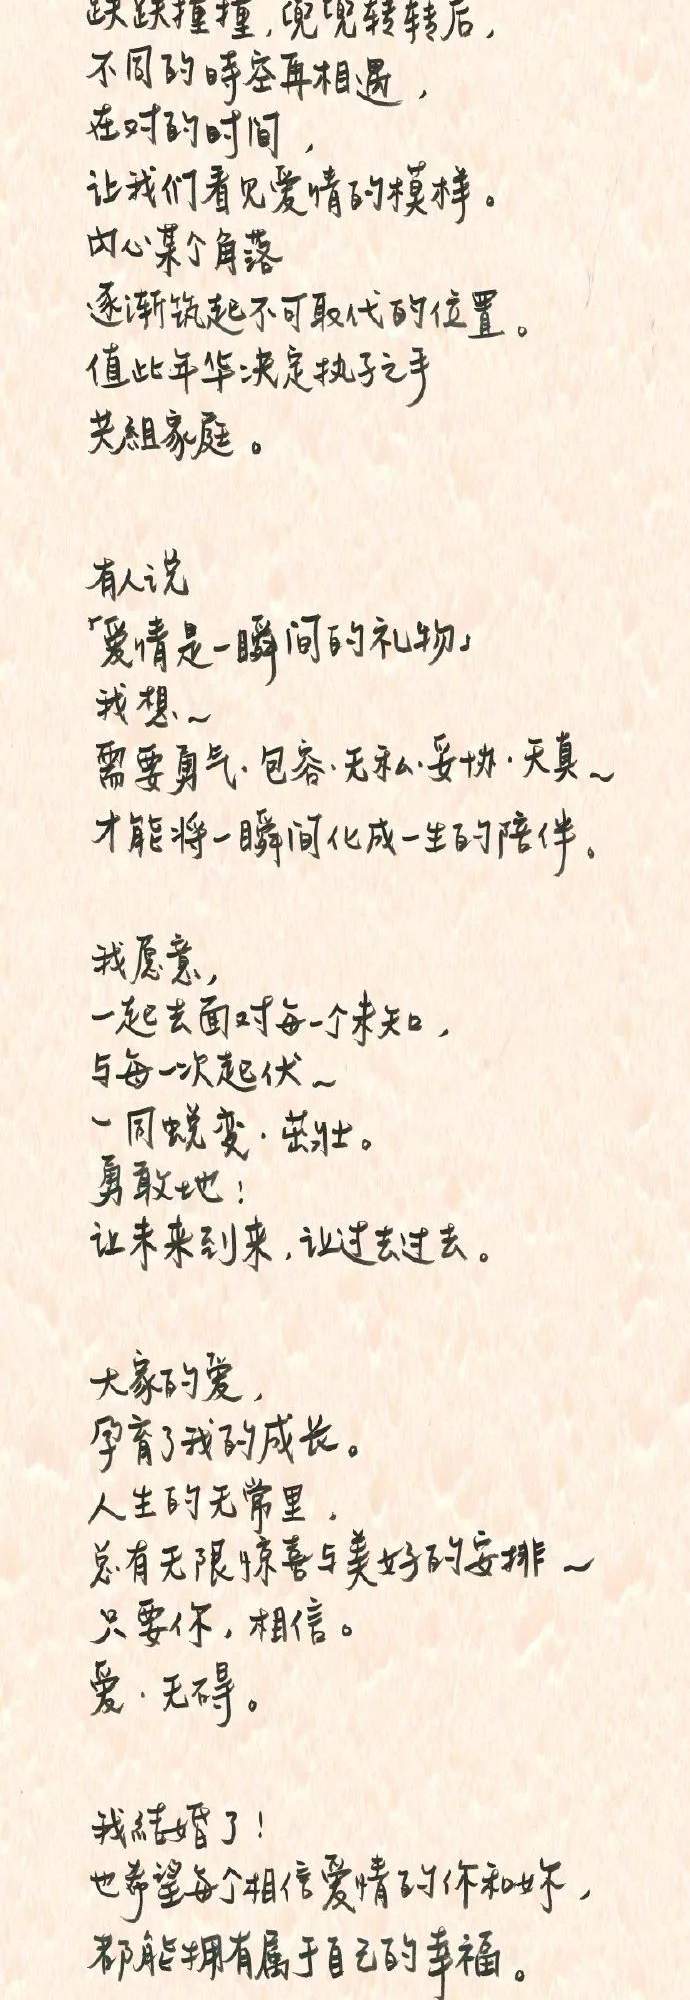 跌跌撞撞，兜兜转转后，
不同的時空再相遇，
在对的时间，
让我们看见爱情的模样。
内心某个角落
逐渐筑起不可取代的位置。
值此年华决定执子之手
共組家庭。
有人说
「爱情是一瞬间的礼物」
我想~
需要勇气·包容·无私·妥协·天真~
才能将一瞬间化成一生的陪伴。
我愿意，
一起去面对每一个未知，
与每一次起伏~
一同蜕变·茁壮。
勇敢地！
让未来到来，让过去过去。
大家的爱，
孕育了我的成长。
人生的无常里，
总有无限惊喜与美好的安排~
只要你，相信。
爱·无碍。
我結婚了！
也希望每个相信爱情的你和妳，
都能拥有属于自己的幸福。